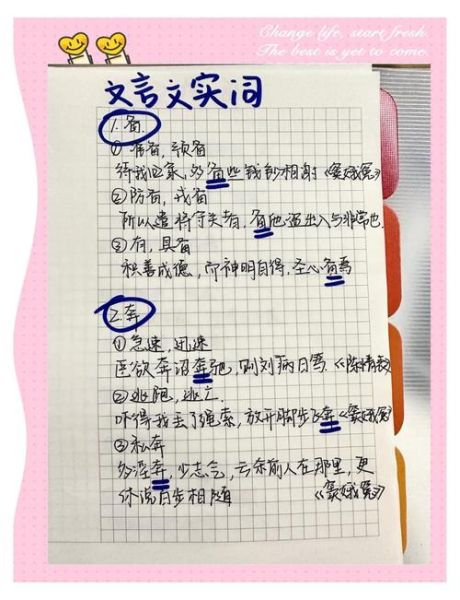 Change life, start fresh.
The best is yet to come.
文言文实词
1.备.
①准备，预备
待我回家,多备些钱钞相谢《窦娥冤》
②防备，戒备
所以遣将守关者，备他盗出入与非常也.
③有，具备
积善成德，而神明自得，圣心备焉
2.奔
①急速，迅速
臣欲奔诏奔驰，则刘病日笃.《陈情表》
②逃跑，逃亡.
吓得我丢了绳索，放开脚步飞奔《窦娥冤》
③私奔
多淫奔，少志气，亏杀前人在那里，更
休说百步相随
《窦娥冤》